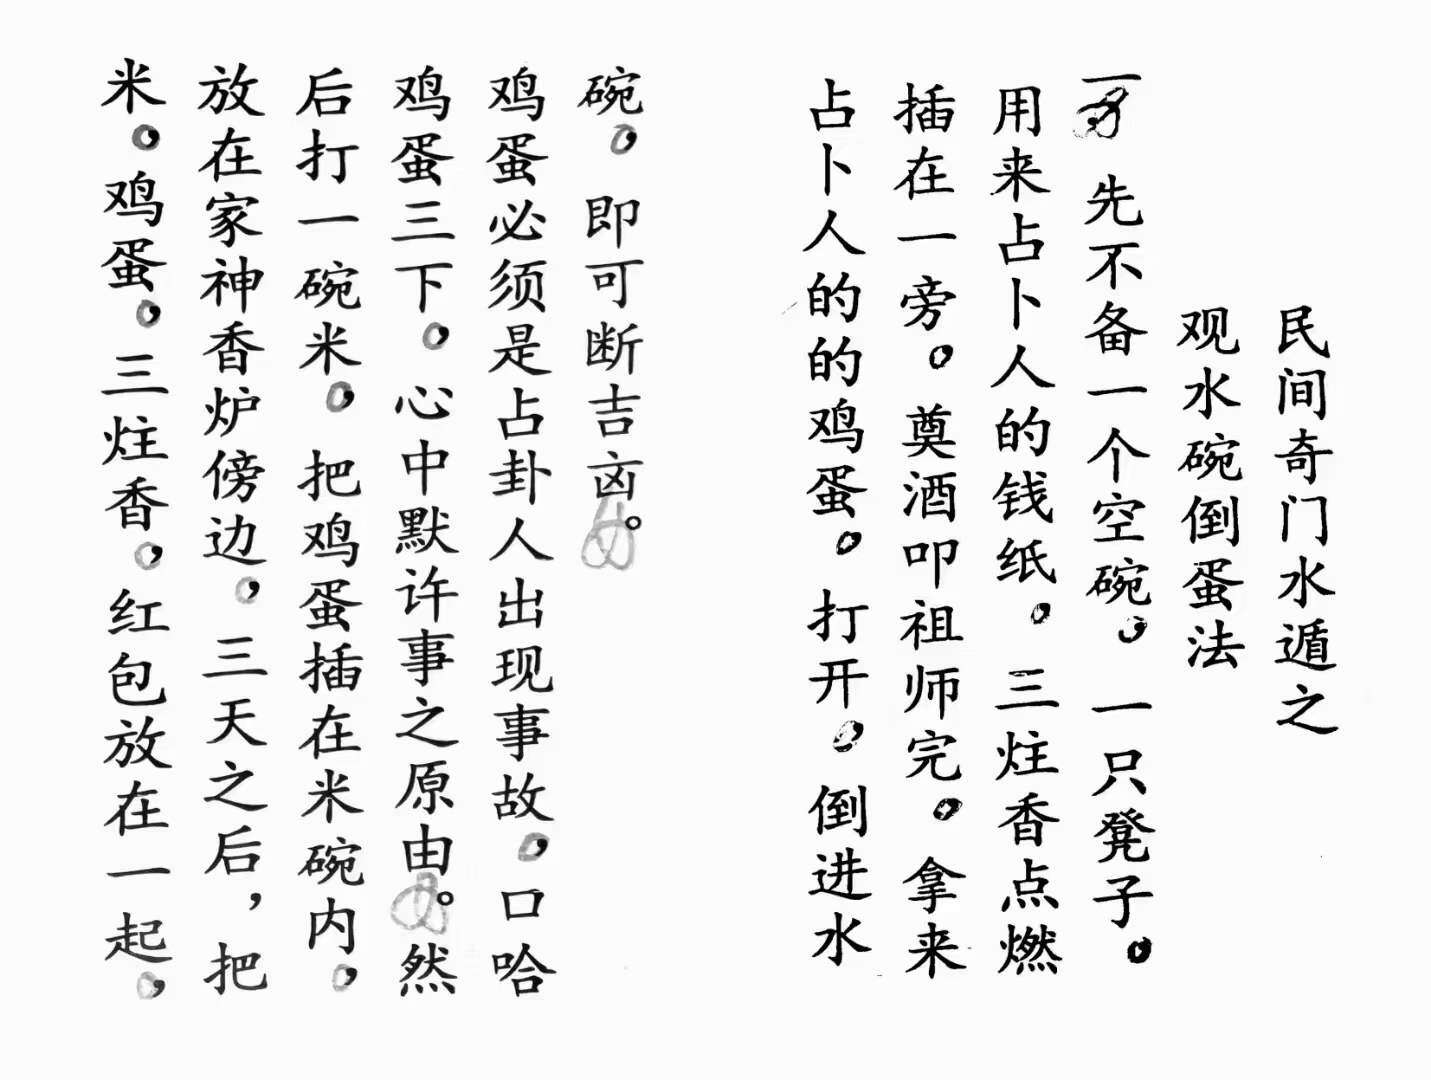 民间奇门水遁之
观水碗倒蛋法
一 先不备一个空碗。一只凳子。
用来占卜人的钱纸。三炷香点燃
插在一旁。奠酒叩祖师完。拿来
占卜人的的鸡蛋。打开。倒进水
碗。即可断吉凶。
鸡蛋必须是占卦人出现事故。口哈
鸡蛋三下。心中默许事之原由。然
后打一碗米。把鸡蛋插在米碗内，
放在家神香炉傍边。三天之后，把
米。鸡蛋。三炷香。红包放在一起。